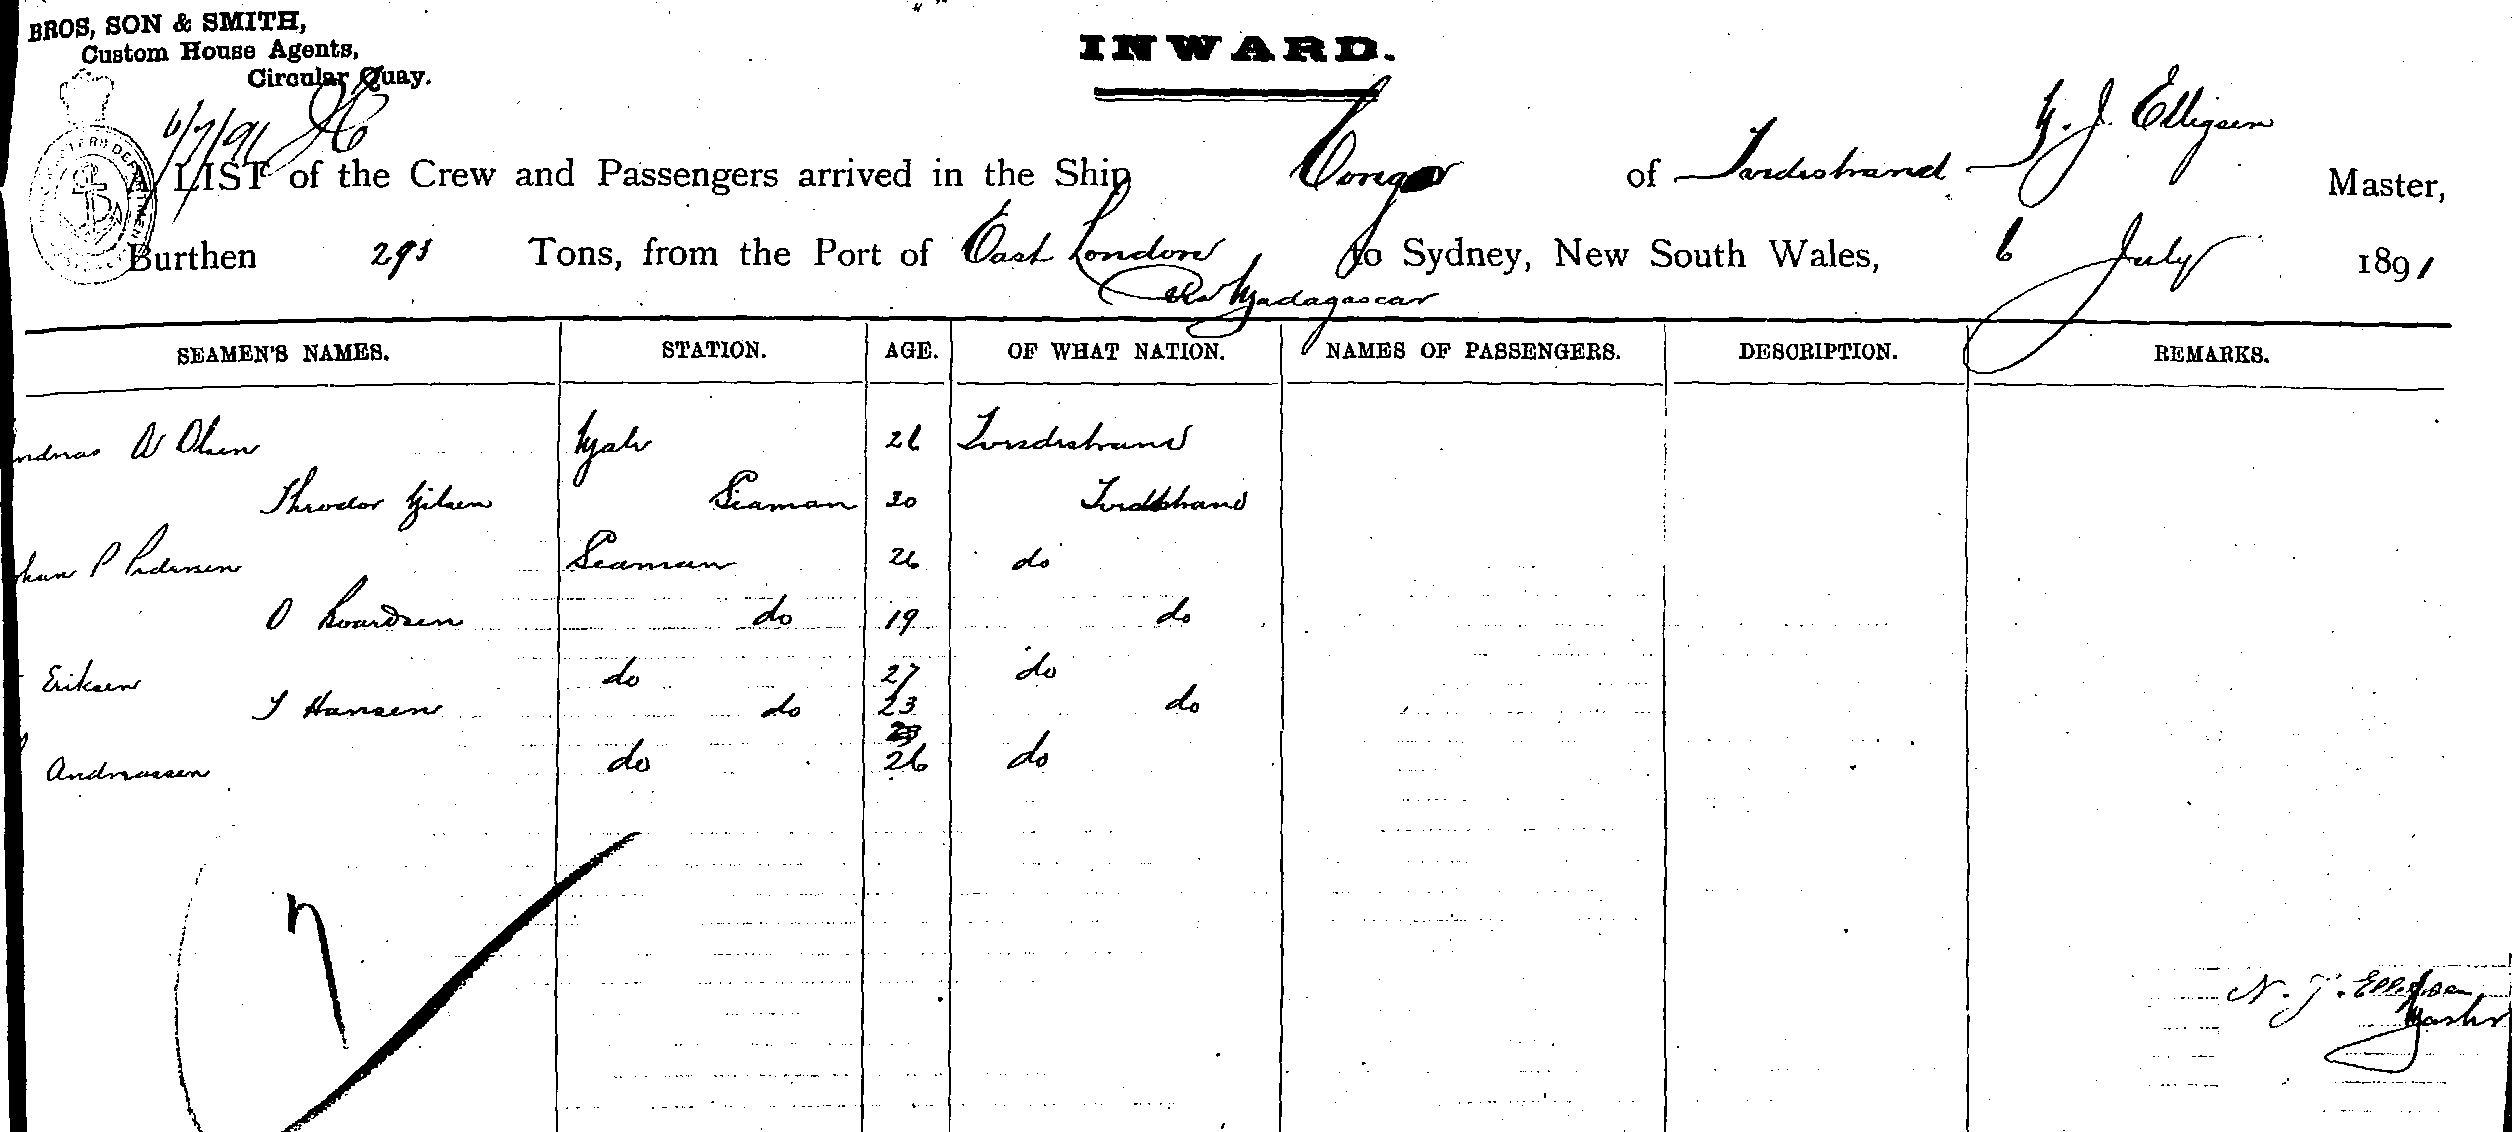 BROS, SON & SMITH,
Custom House Agents,
Circular Quay.
INWARD.
6/7/91
A LIST of the Crew and Passengers arrived in the Ship of Tvedestrand N. J. Elligsen Master,
Burthen 293 Tons, from the Port of East London to Sydney, New South Wales, 6 July 1891
Madagascar
SEAMEN'S NAMES. STATION. AGE. OF WHAT NATION. NAMES OF PASSENGERS. DESCRIPTION. REMARKS.
A Olsen Mate 26 Tvedestrand
Theodor Seaman 30 Tvedestrand
P Pedersen Seaman 26 do
O do 19 do
Eriksen do 27 do
T Hansen do 23 do
Andreassen do 26 do
7
N. J. Elligsen
Master